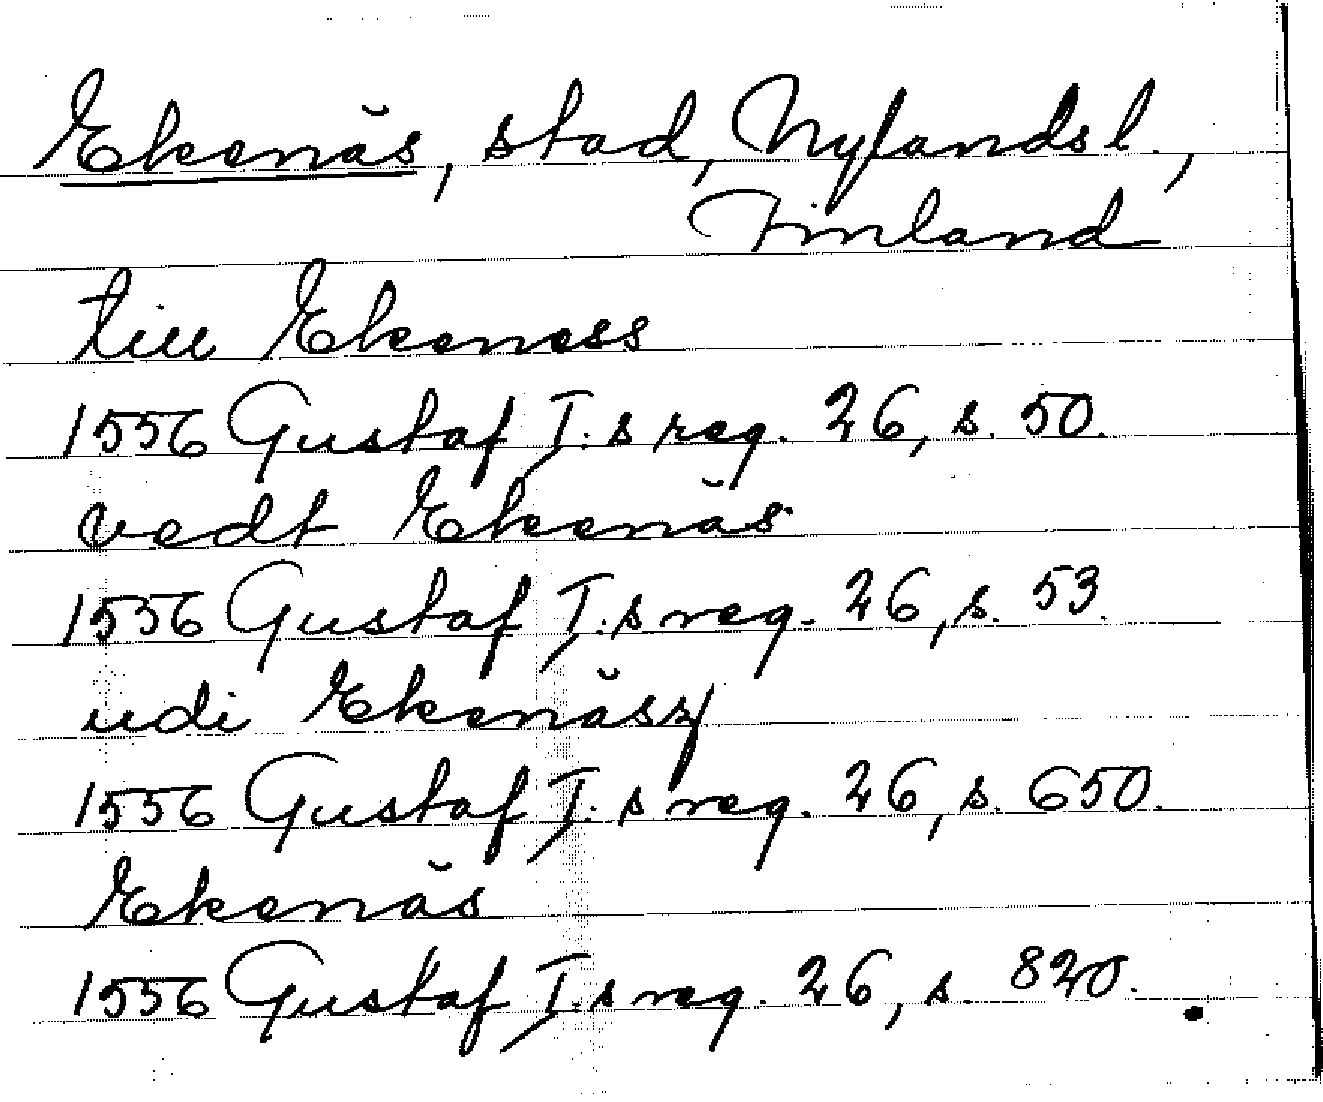 Ekenäs, stad, Nylands l.,
Finland
till Ekeness
1556 Gustaf I:s reg. 26, s. 50.
vedt Ekenäs
1556 Gustaf I:s reg. 26, s. 53.
udi Ekenäsz
1556 Gustaf I:s reg. 26, s. 650.
Ekenäs
1556 Gustaf I:s reg. 26, s. 820.